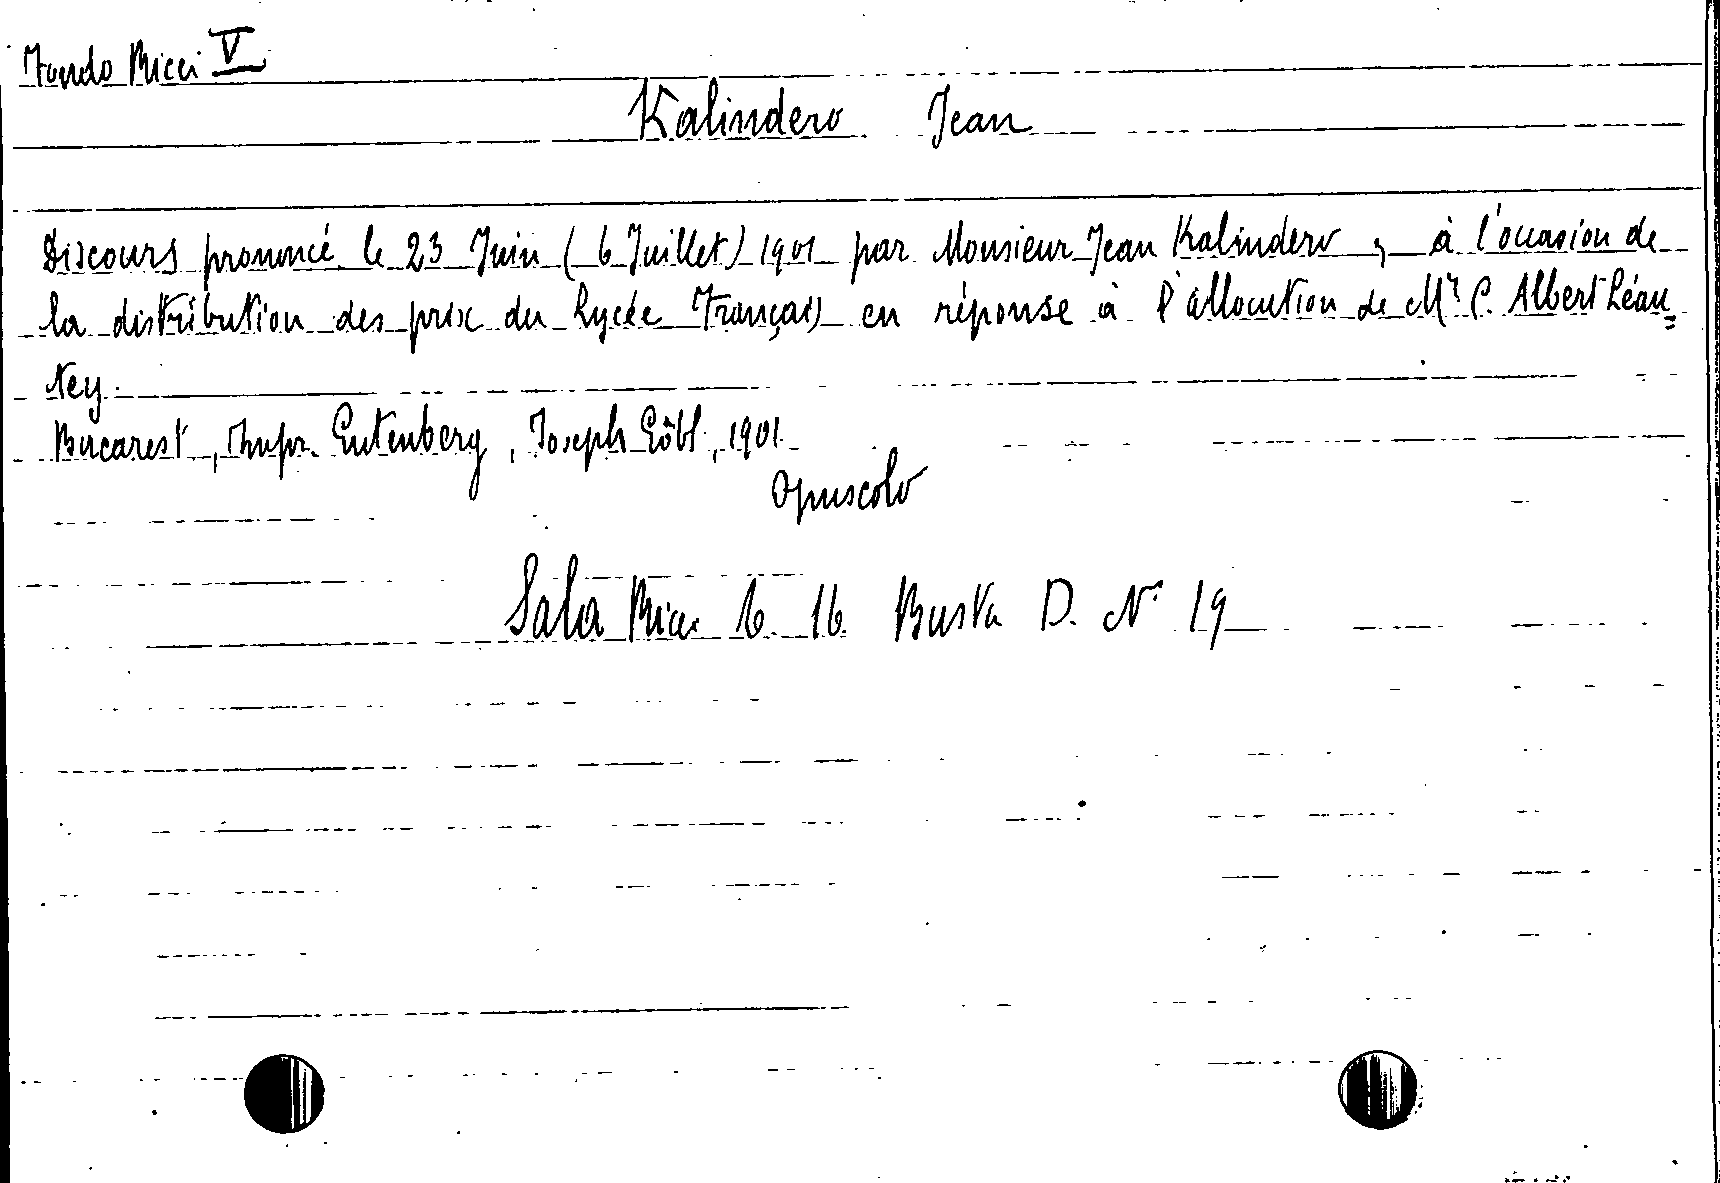 Fondo Ricci V
Kalindero Jean
Discours prononcé le 23 Juin (6 Juillet) 1901 par Monsieur Jean Kalindero, à l'occasion de
la distribution des prix du Lycée Français en réponse à l'allocution de Mr C. Albert Léau=
tey.
Bucarest, Impr. Gutenberg, Joseph Göbl, 1901
Opuscolo
Sala Ricci 6. 16. Busta D. N. 19